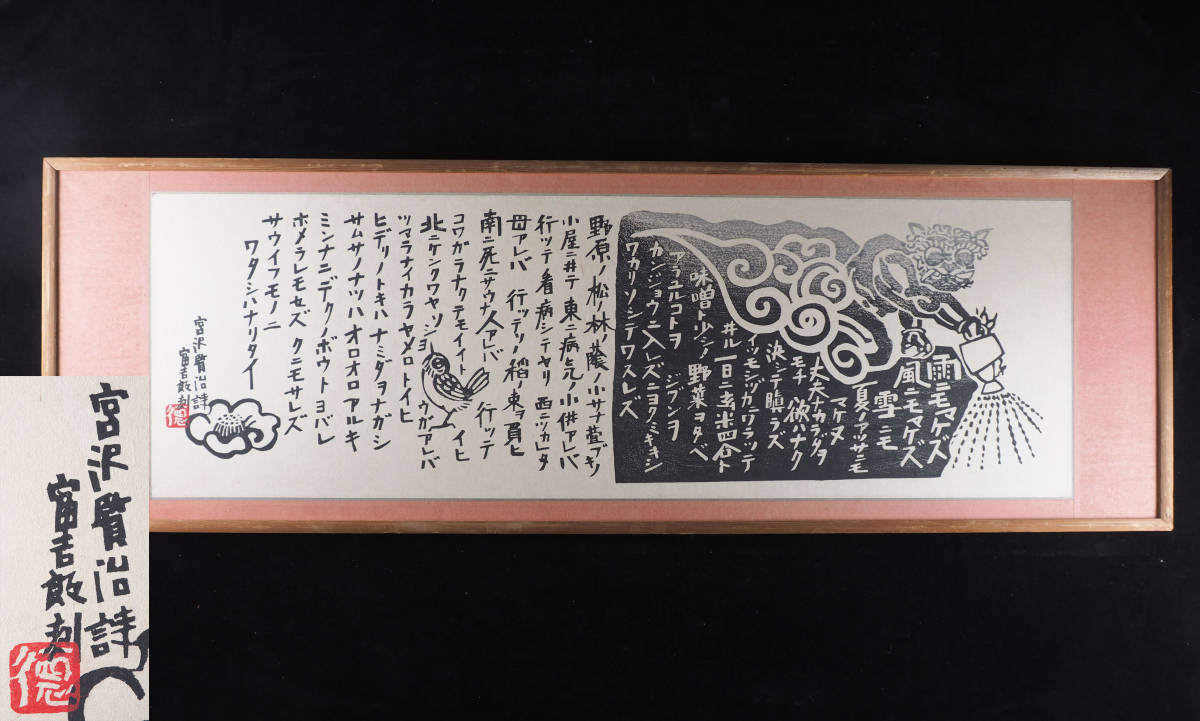 雨ニモマケズ
風ニモマケズ
雪ニモ
夏ノアツサニモ
マケヌ
丈夫ナカラダヲ
モチ 欲ハナク
決シテ瞋ラズ
イツモシヅカニワラッテ
井ル 一日ニ玄米四合ト
味噌ト少シノ野菜ヲタベ
アラユルコトヲ ジブンヲ
カンジョウニ入レズニヨクミキキシ
ワカリソシテワスレズ
野原ノ松ノ林ノ蔭ノ小サナ萱ブキノ
小屋ニ井テ 東ニ病気ノ小供アレバ
行ッテ看病シテヤリ 西ニツカレタ
母アレバ 行ッテソノ稲ノ束ヲ負ヒ
南ニ死ニサウナ人アレバ 行ッテ
コワガラナクテモイイト イヒ
北ニケンクワヤソショウガアレバ
ツマラナイカラヤメロトイヒ
ヒデリノトキハナミダヲナガシ
サムサノナツハオロオロアルキ
ミンナニデクノボウトヨバレ
ホメラレモセズ クニモサレズ
サウイフモノニ
ワタシハナリタイ
宮沢賢治詩
富吉郎刻
徳
宮沢賢治詩
富吉郎刻
徳